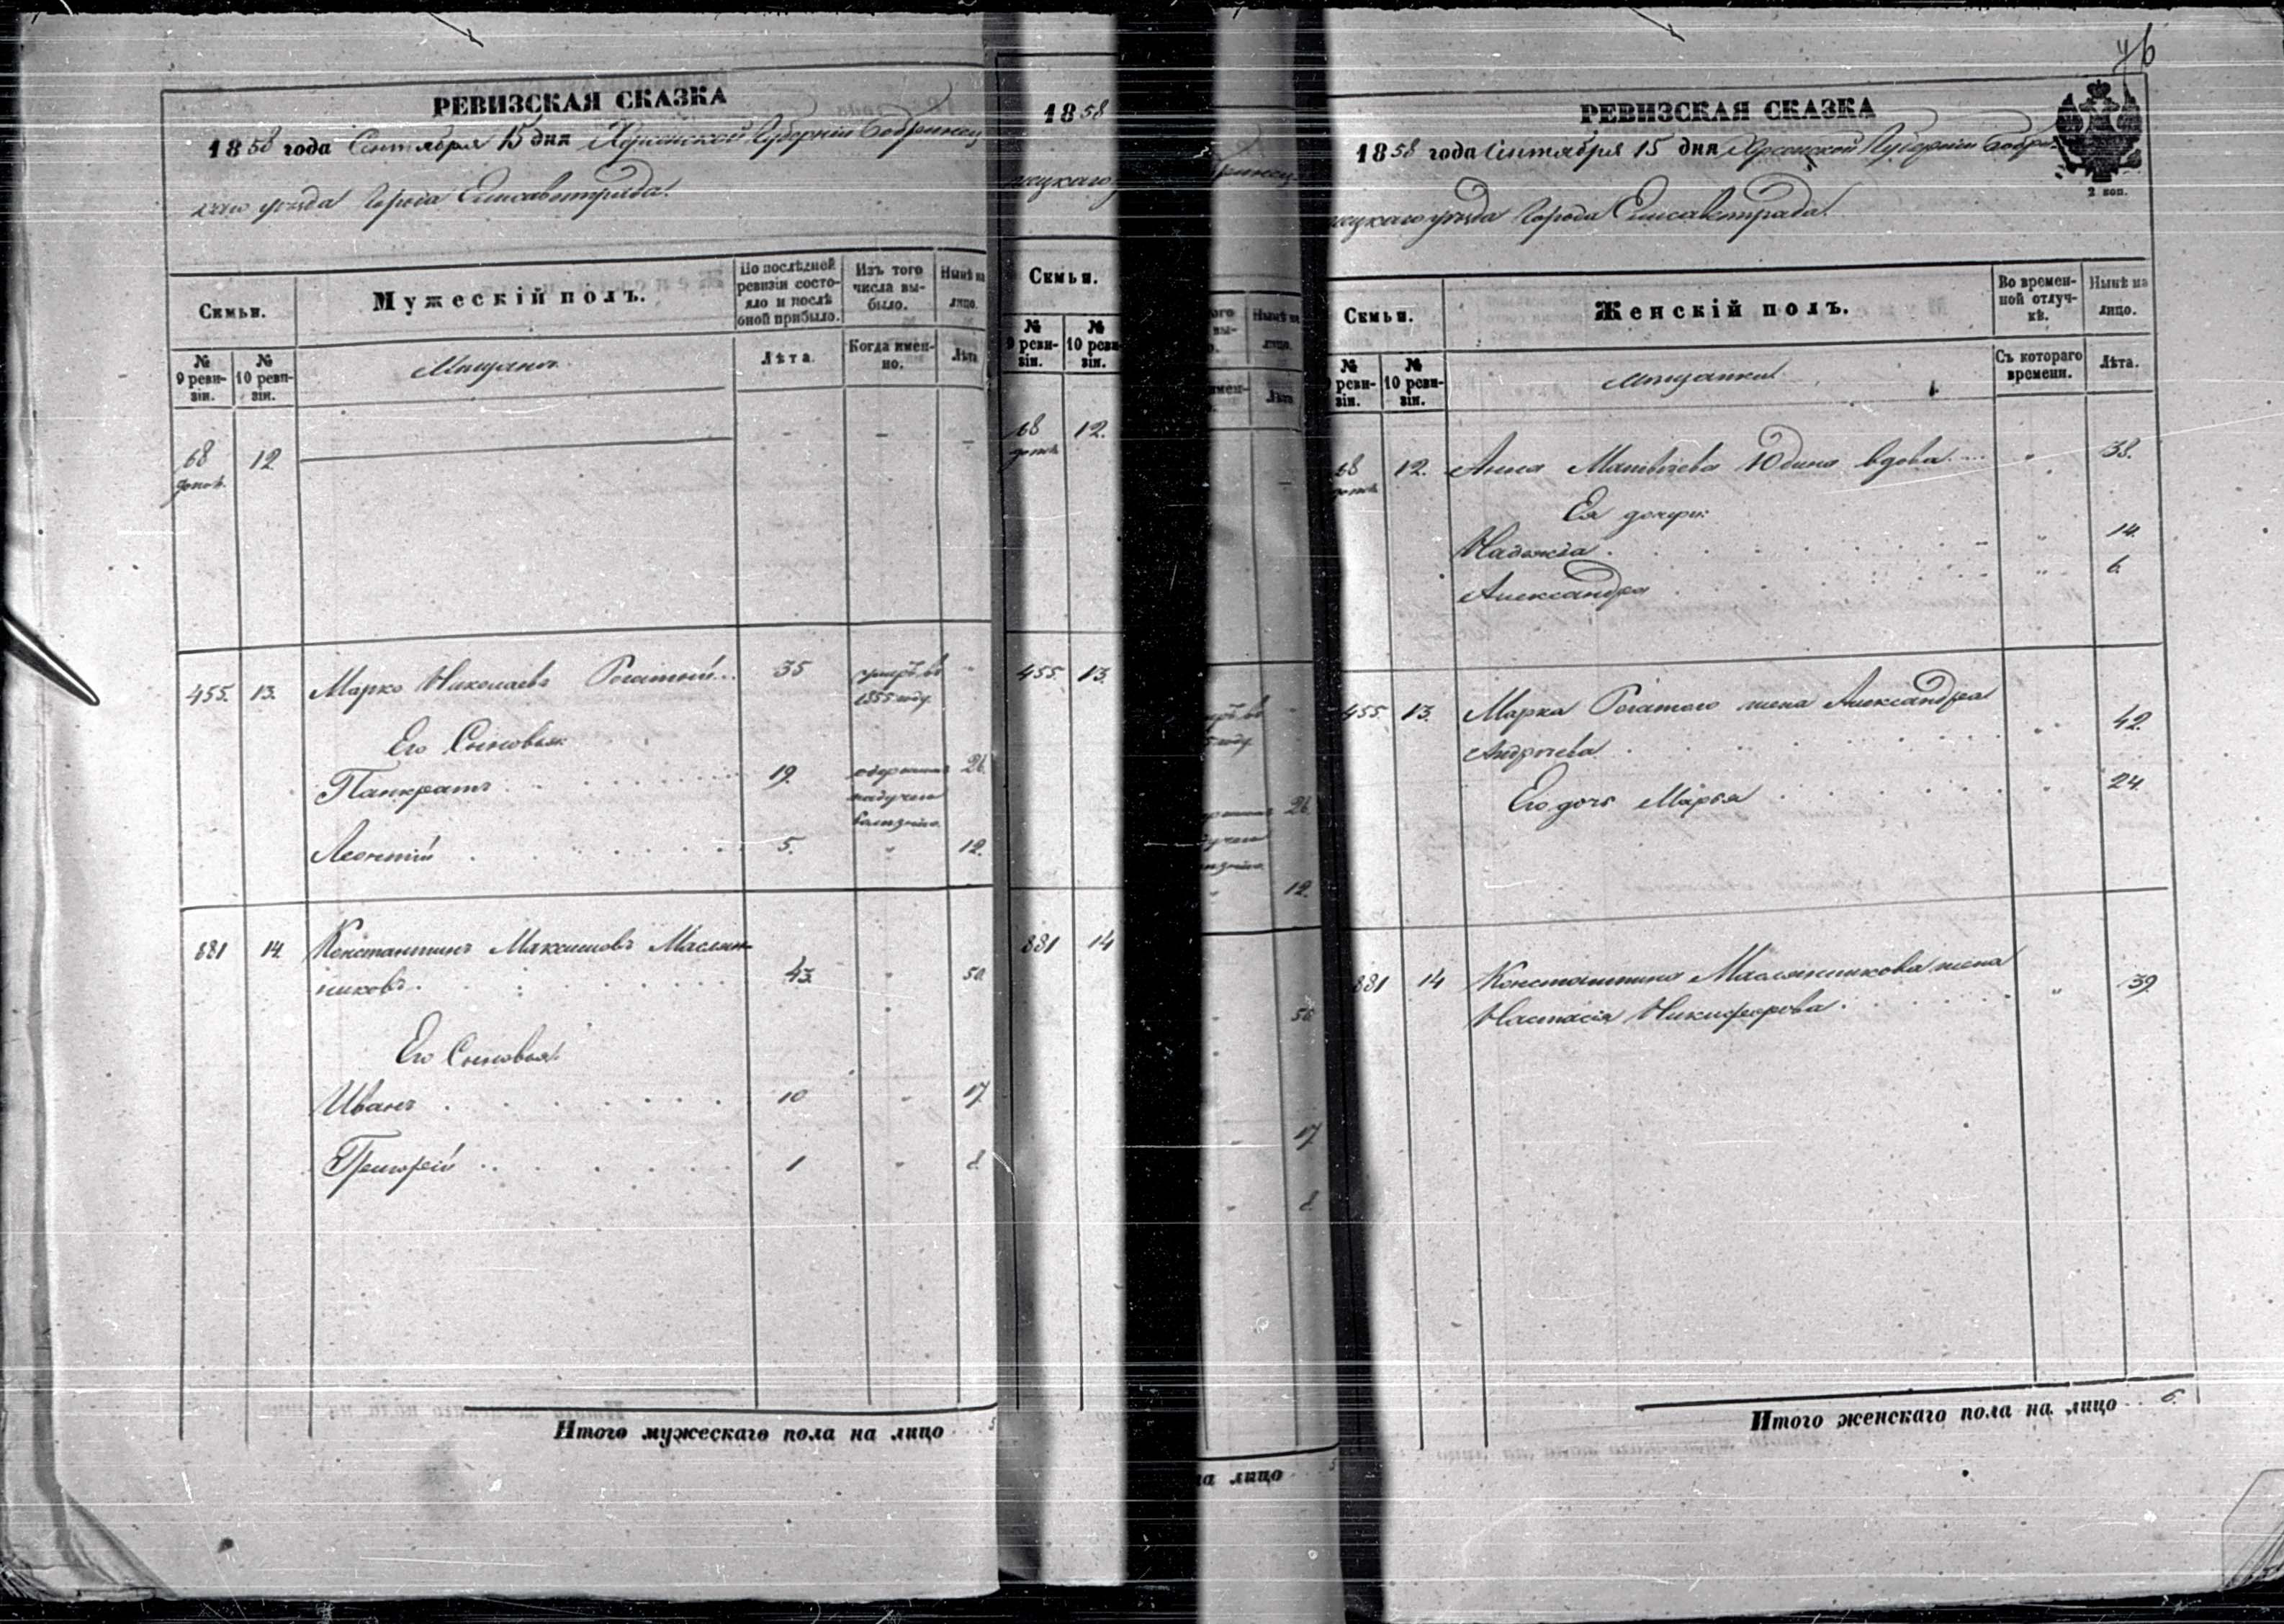 РЕВИЗСКАЯ СКАЗКА
1858 года Сентября 15 дня Херсонской Губерніи Бобринец
каго уѣзда Города Елисаветграда.
Семьи.
Мужескій полъ.
По послѣдней ревизіи состояло и послѣ оной прибыло.
Изъ того числа выбыло.
Нынѣ на лицо.
№ 9 ревизіи.
№ 10 ревизіи.
Мѣщане
Лѣта.
Когда именно.
Лѣта
68 12 — — —
допол.
455. 13. Марко Николаевъ Рогатый 35 умеръ въ
1855 году.
Его Сыновья:
Панкратъ 19. 26.
Леонтій 5. " 12.
881 14. Константинъ Максимовъ Маслян
никовъ. 43. " 50.
Его Сыновья:
Иванъ 10 " 17.
Григорій 1 " 8.
Итого мужескаго пола на лицо 5
1858
нецкаго
Семьи.
№ 9 ревизіи.
№ 10 ревизіи.
68 12.
допол.
455. 13.
881 14
Нынѣ на
лицо.
Лѣта
26.
12.
50.
17.
8.
на лицо 5
РЕВИЗСКАЯ СКАЗКА
2 коп.
1858 года Сентября 15 дня Херсонской Губерніи Бобри
нецкаго уѣзда Города Елисаветграда.
Семьи.
Женскій полъ.
Во временной отлучкѣ.
Нынѣ на лицо.
№ 9 ревизіи.
№ 10 ревизіи.
Мѣщанки
Съ котораго времени.
Лѣта.
68 12. Анна Матвѣева Юдина вдова " 38.
допол.
Ея дочери:
Надежда " 14.
Александра " 6.
455. 13. Марка Рогатого жена Александра
Андреева " 42.
Его дочь Марья " 24.
881 14 Константина Маслянникова жена
Настасія Никифорова " 39.
Итого женскаго пола на лицо 6.